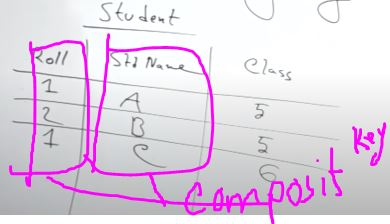 Student
Roll Std Name Class
1 A 5
2 B 5
1 C 6
Composit Key